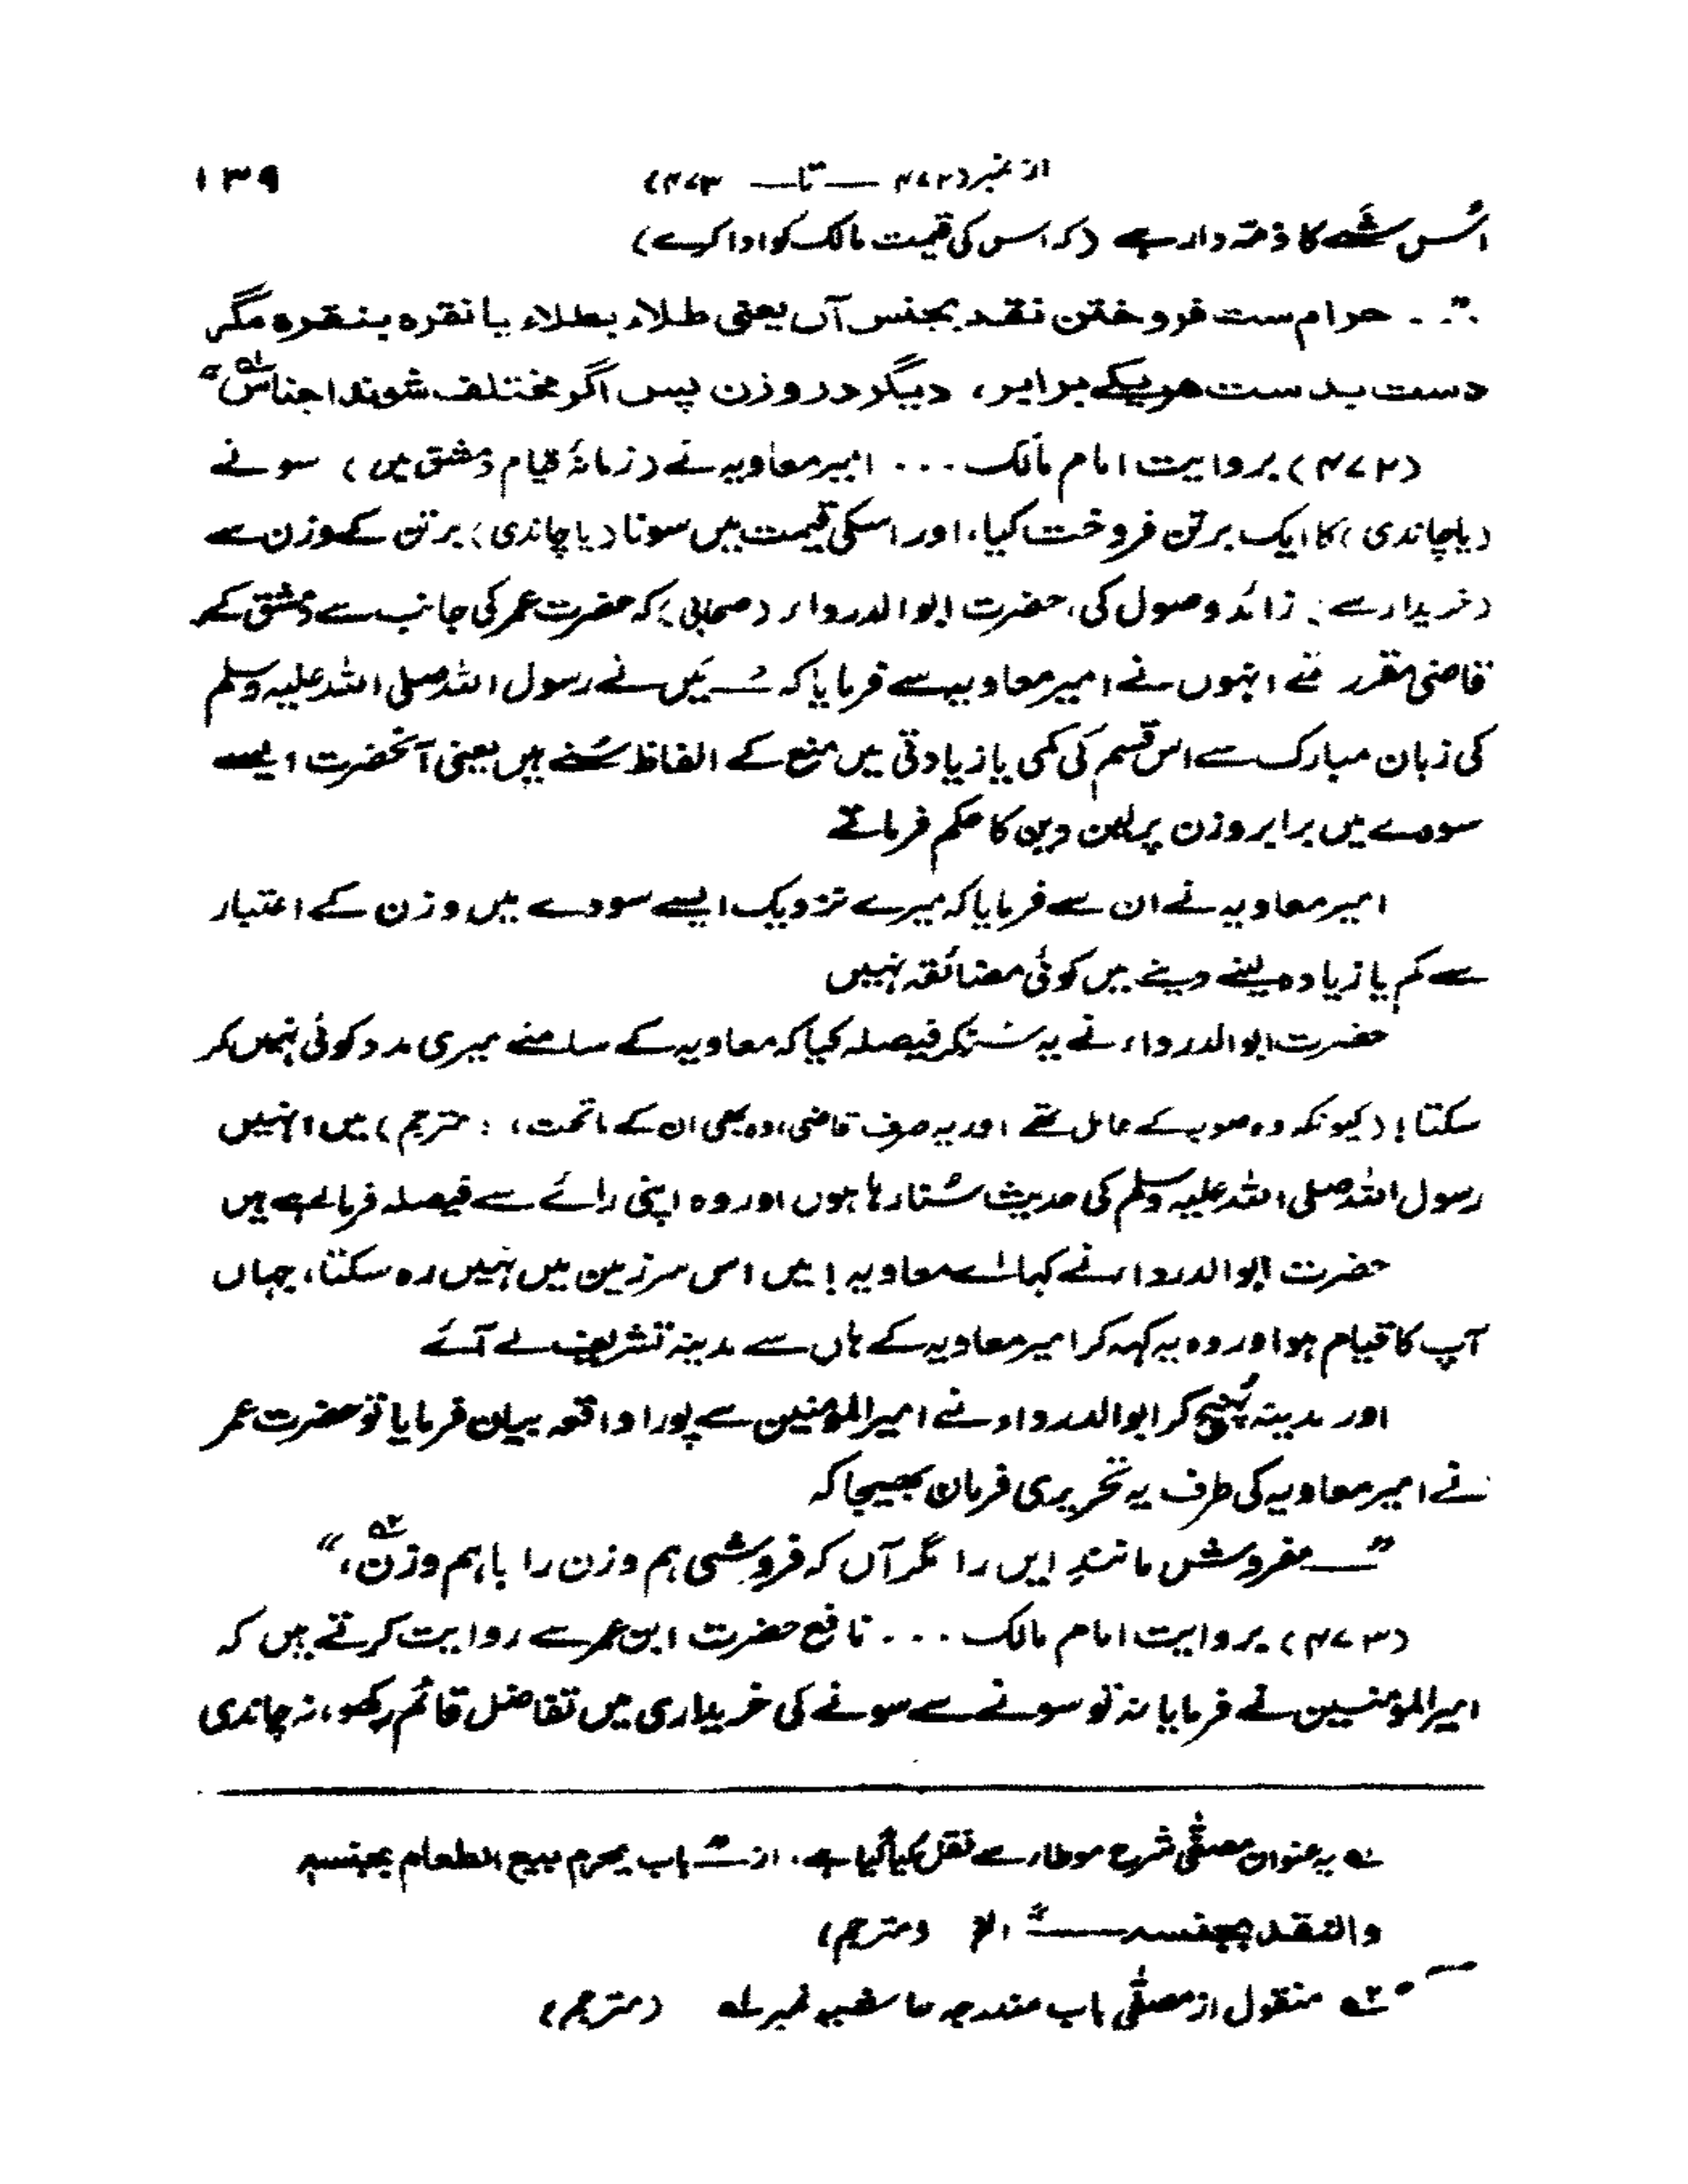 از نمبر (۴۷۲ — تا — ۴۷۳) ۱۳۹
اُس شَے کا ذمّہ دار ہے (کہ اس کی قیمت مالک کو ادا کرے)
”. . حرام ست فروختن نقد بجنس آں یعنی طلاء بطلاء یا نقرہ بنقرہ مگر
دست بدست هریکے برابر، دیگر در وزن پس اگر مختلف شوند اجناس؎۱“
(۴۷۲) بروایت امام مالک ... امیر معاویہ نے (زمانۂ قیام دمشق میں) سونے
(یا چاندی) کا ایک برتن فروخت کیا، اور اسکی قیمت میں سونا (یا چاندی) برتن کے وزن سے
(خریدار سے) زائد وصول کی، حضرت ابو الدرداء (صحابی) کہ حضرت عمر کی جانب سے دمشق کے
قاضی مقرر تھے انہوں نے امیر معاویہ سے فرمایا کہ ”میَں نے رسول اللہ صلی اللہ علیہ وسلم
کی زبان مبارک سے اس قسم کی کمی یا زیادتی میں منع کے الفاظ سُنے ہیں یعنی آنحضرت ایسے
سودے میں برابر وزن پر لین دین کا حکم فرماتے
امیر معاویہ نے ان سے فرمایا کہ میرے نزدیک ایسے سودے میں وزن کے اعتبار
سے کم یا زیادہ لینے دینے میں کوئی مضائقہ نہیں
حضرت ابو الدرداء نے یہ سُنکر فیصلہ کیا کہ معاویہ کے سامنے میری مدد کوئی نہیں کر
سکتا! (کیونکہ وہ صوبہ کے عامل تھے اور یہ صرف قاضی، وہ بھی ان کے ماتحت، : مترجم) میں انہیں
رسول اللہ صلی اللہ علیہ وسلم کی حدیث سُنا رہا ہوں اور وہ اپنی رائے سے فیصلہ فرما رہے ہیں
حضرت ابو الدرداء نے کہا اے معاویہ! میں اس سرزمین میں نہیں رہ سکتا، جہاں
آپ کا قیام ہو اور وہ یہ کہہ کر امیر معاویہ کے ہاں سے مدینہ تشریف لے آئے
اور مدینہ پُہنچ کر ابو الدرداء نے امیر المؤمنین سے پورا واقعہ بیان فرمایا تو حضرت عمر
نے امیر معاویہ کی طرف یہ تحریری فرمان بھیجا کہ
”مفروش مانندِ ایں را مگر آں کہ فروشی ہم وزن را باہم وزن؎۲،“
(۴۷۳) بروایت امام مالک ... نافع حضرت ابن عمر سے روایت کرتے ہیں کہ
امیر المؤمنین نے فرمایا نہ تو سونے سے سونے کی خریداری میں تفاضل قائم رکھو، نہ چاندی
؎۱ یہ عنوان مصفّٰی شرح موطاء سے نقل کیا گیا ہے، از ”باب یحرم بیع الطعام بجنسہ
والنقد بجنسہ“ الخ (مترجم)
؎۲ منقول از مصفّٰی باب مندرجہ حاشیہ نمبر ؎۱ (مترجم)